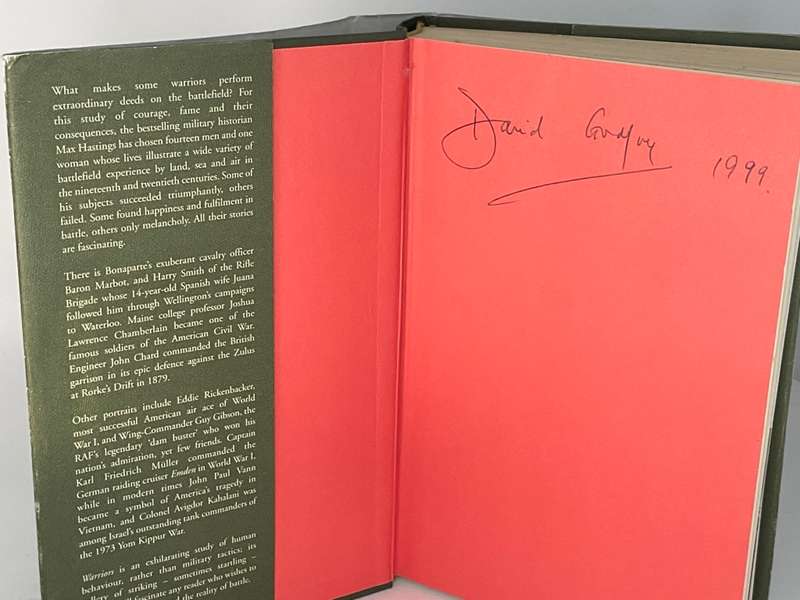 What makes some warriors perform
extraordinary deeds on the battlefield? For
this study of courage, fame and their
consequences, the bestselling military historian
Max Hastings has chosen fourteen men and one
woman whose lives illustrate a wide variety of
battlefield experience by land, sea and air in
the nineteenth and twentieth centuries. Some of
his subjects succeeded triumphantly, others
failed. Some found happiness and fulfilment in
battle, others only melancholy. All their stories
are fascinating.
There is Bonaparte's exuberant cavalry officer
Baron Marbot, and Harry Smith of the Rifle
Brigade whose 14-year-old Spanish wife Juana
followed him through Wellington's campaigns
to Waterloo. Maine college professor Joshua
Lawrence Chamberlain became one of the
famous soldiers of the American Civil War.
Engineer John Chard commanded the British
garrison in its epic defence against the Zulus
at Rorke's Drift in 1879.
Other portraits include Eddie Rickenbacker,
most successful American air ace of World
War I, and Wing-Commander Guy Gibson, the
RAF's legendary 'dam buster' who won his
nation's admiration, yet few friends. Captain
Karl Friedrich Müller commanded the
German raiding cruiser Emden in World War I,
while in modern times John Paul Vann
became a symbol of America's tragedy in
Vietnam, and Colonel Avigdor Kahalani was
among Israel's outstanding tank commanders of
the 1973 Yom Kippur War.
Warriors is an exhilarating study of human
behaviour, rather than military tactics; its
of striking – sometimes startling –
fascinate any reader who wishes to
the reality of battle.
David Godfrey 1999.